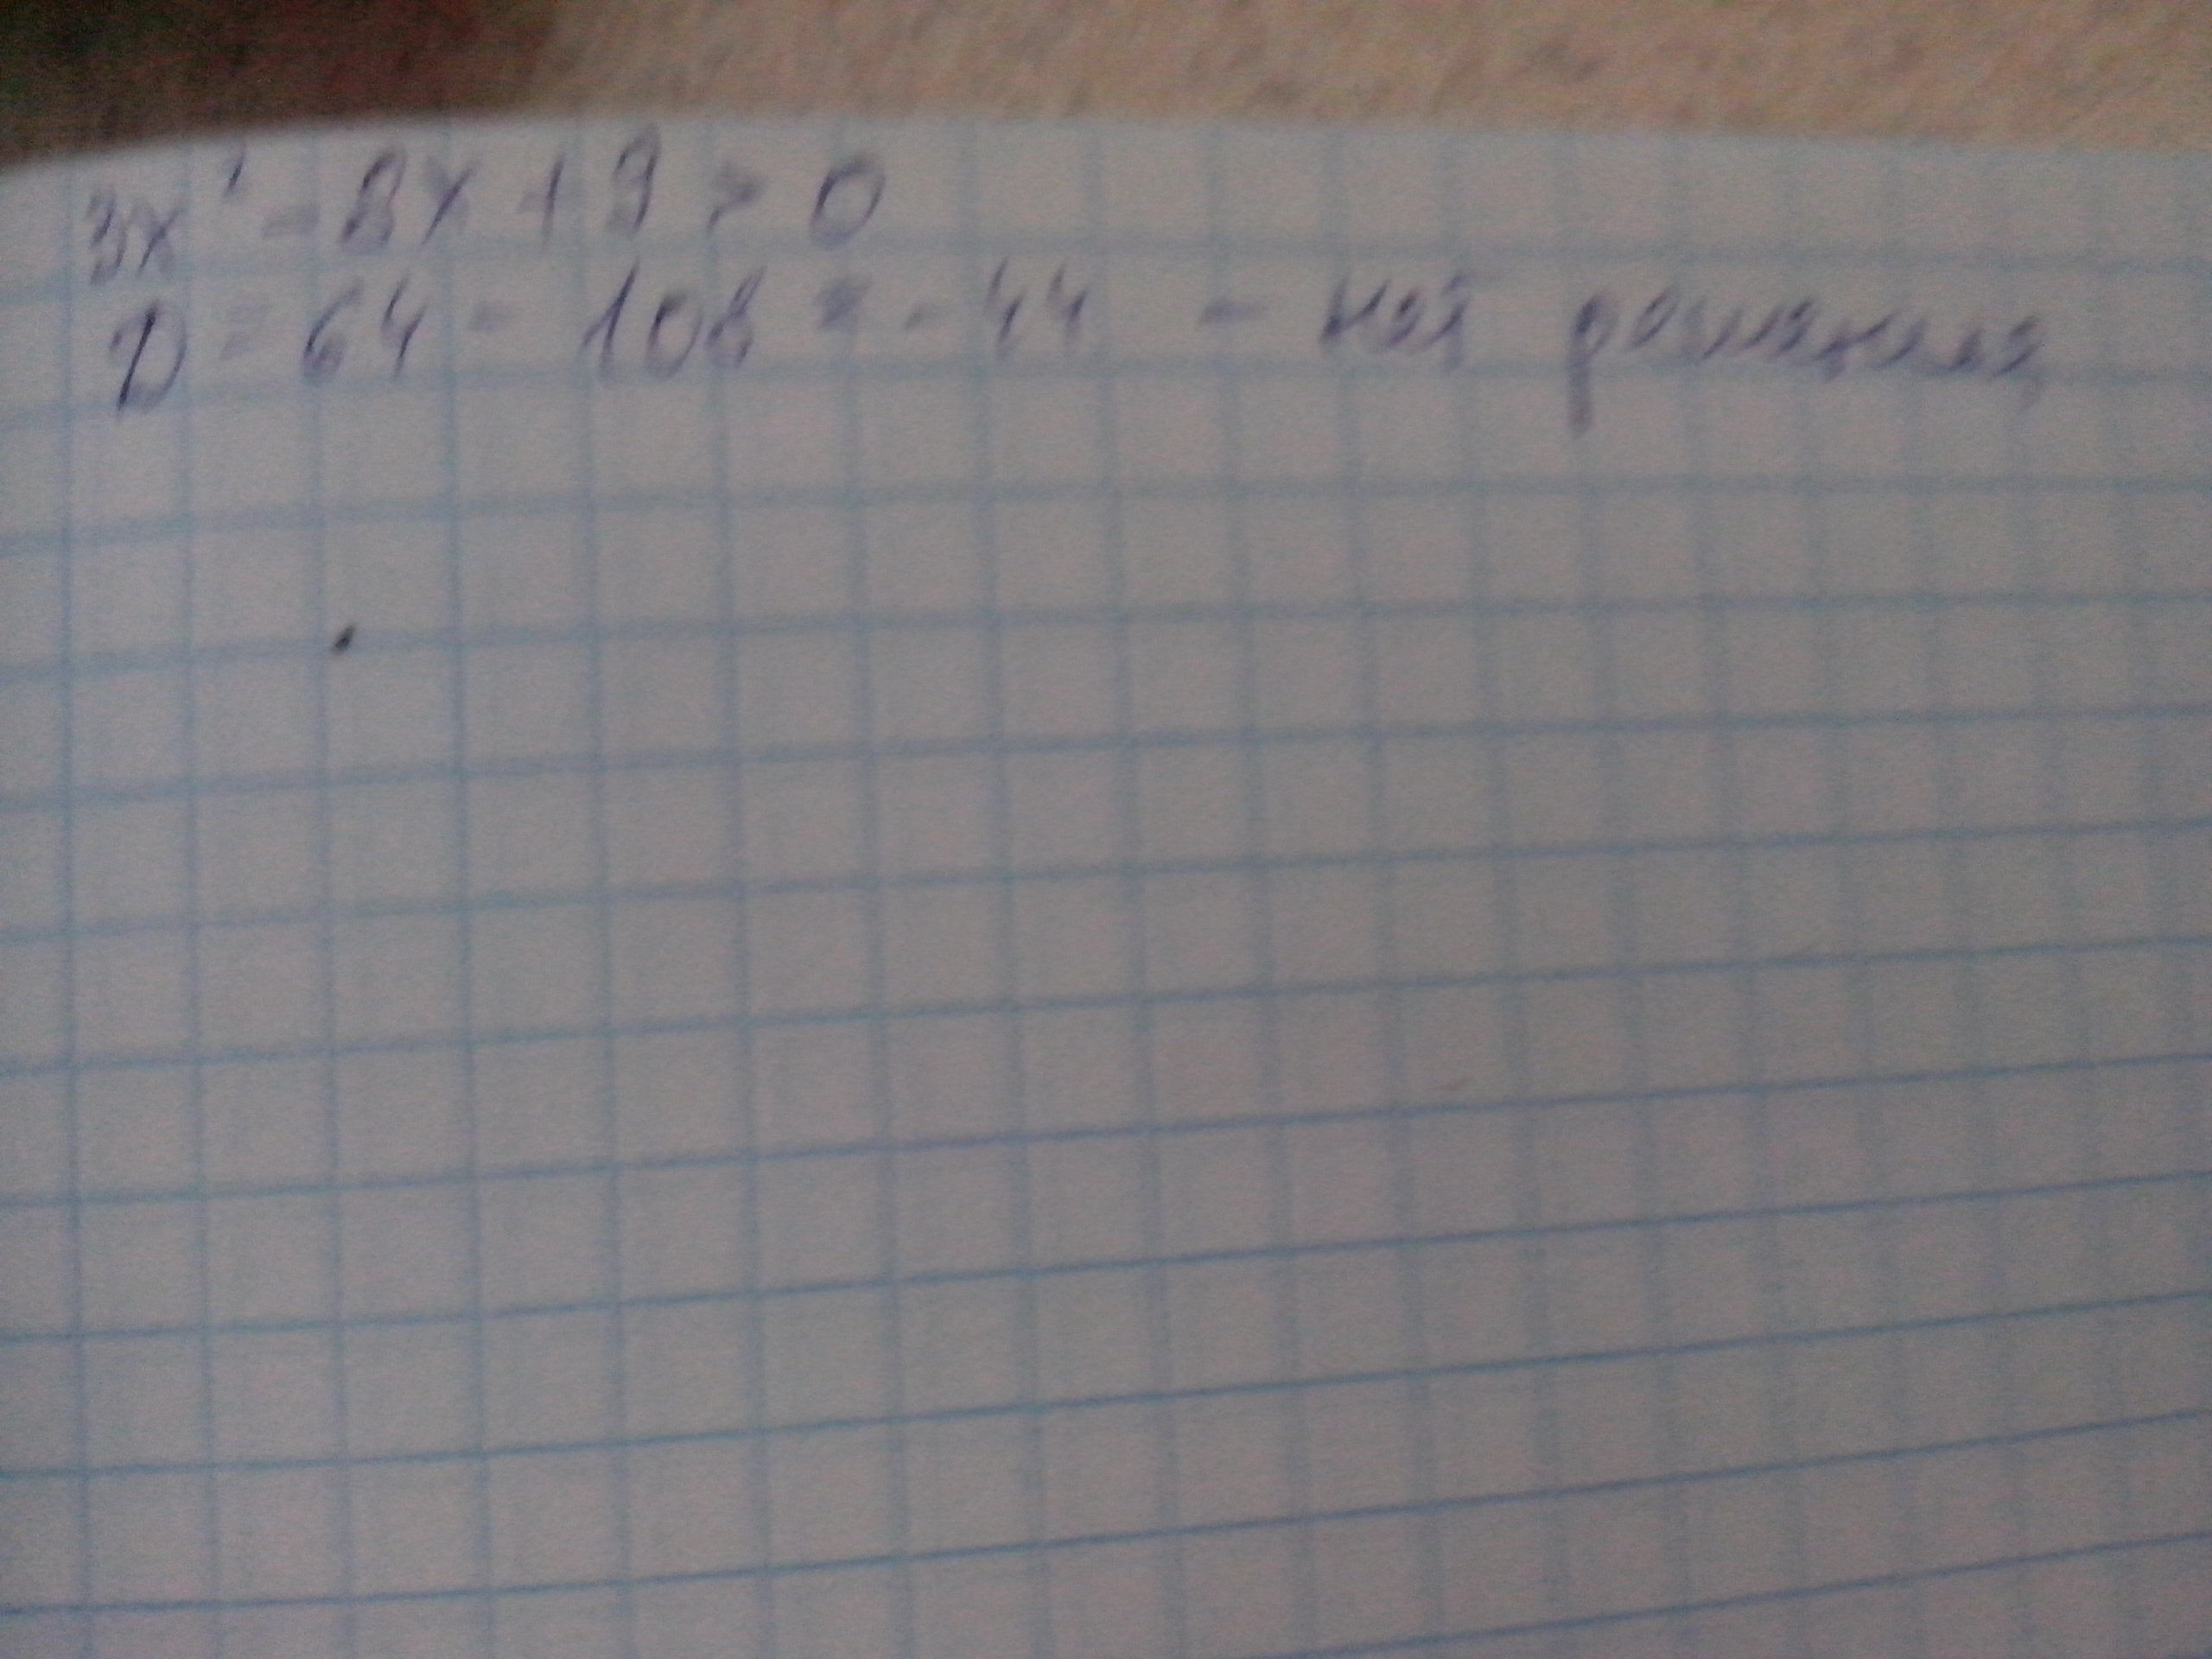 3x² - 8x + 9 > 0
D = 64 - 108 = -44 - нет решения